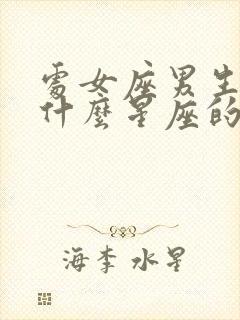 處女座男生
什麼星座的
海李 水星